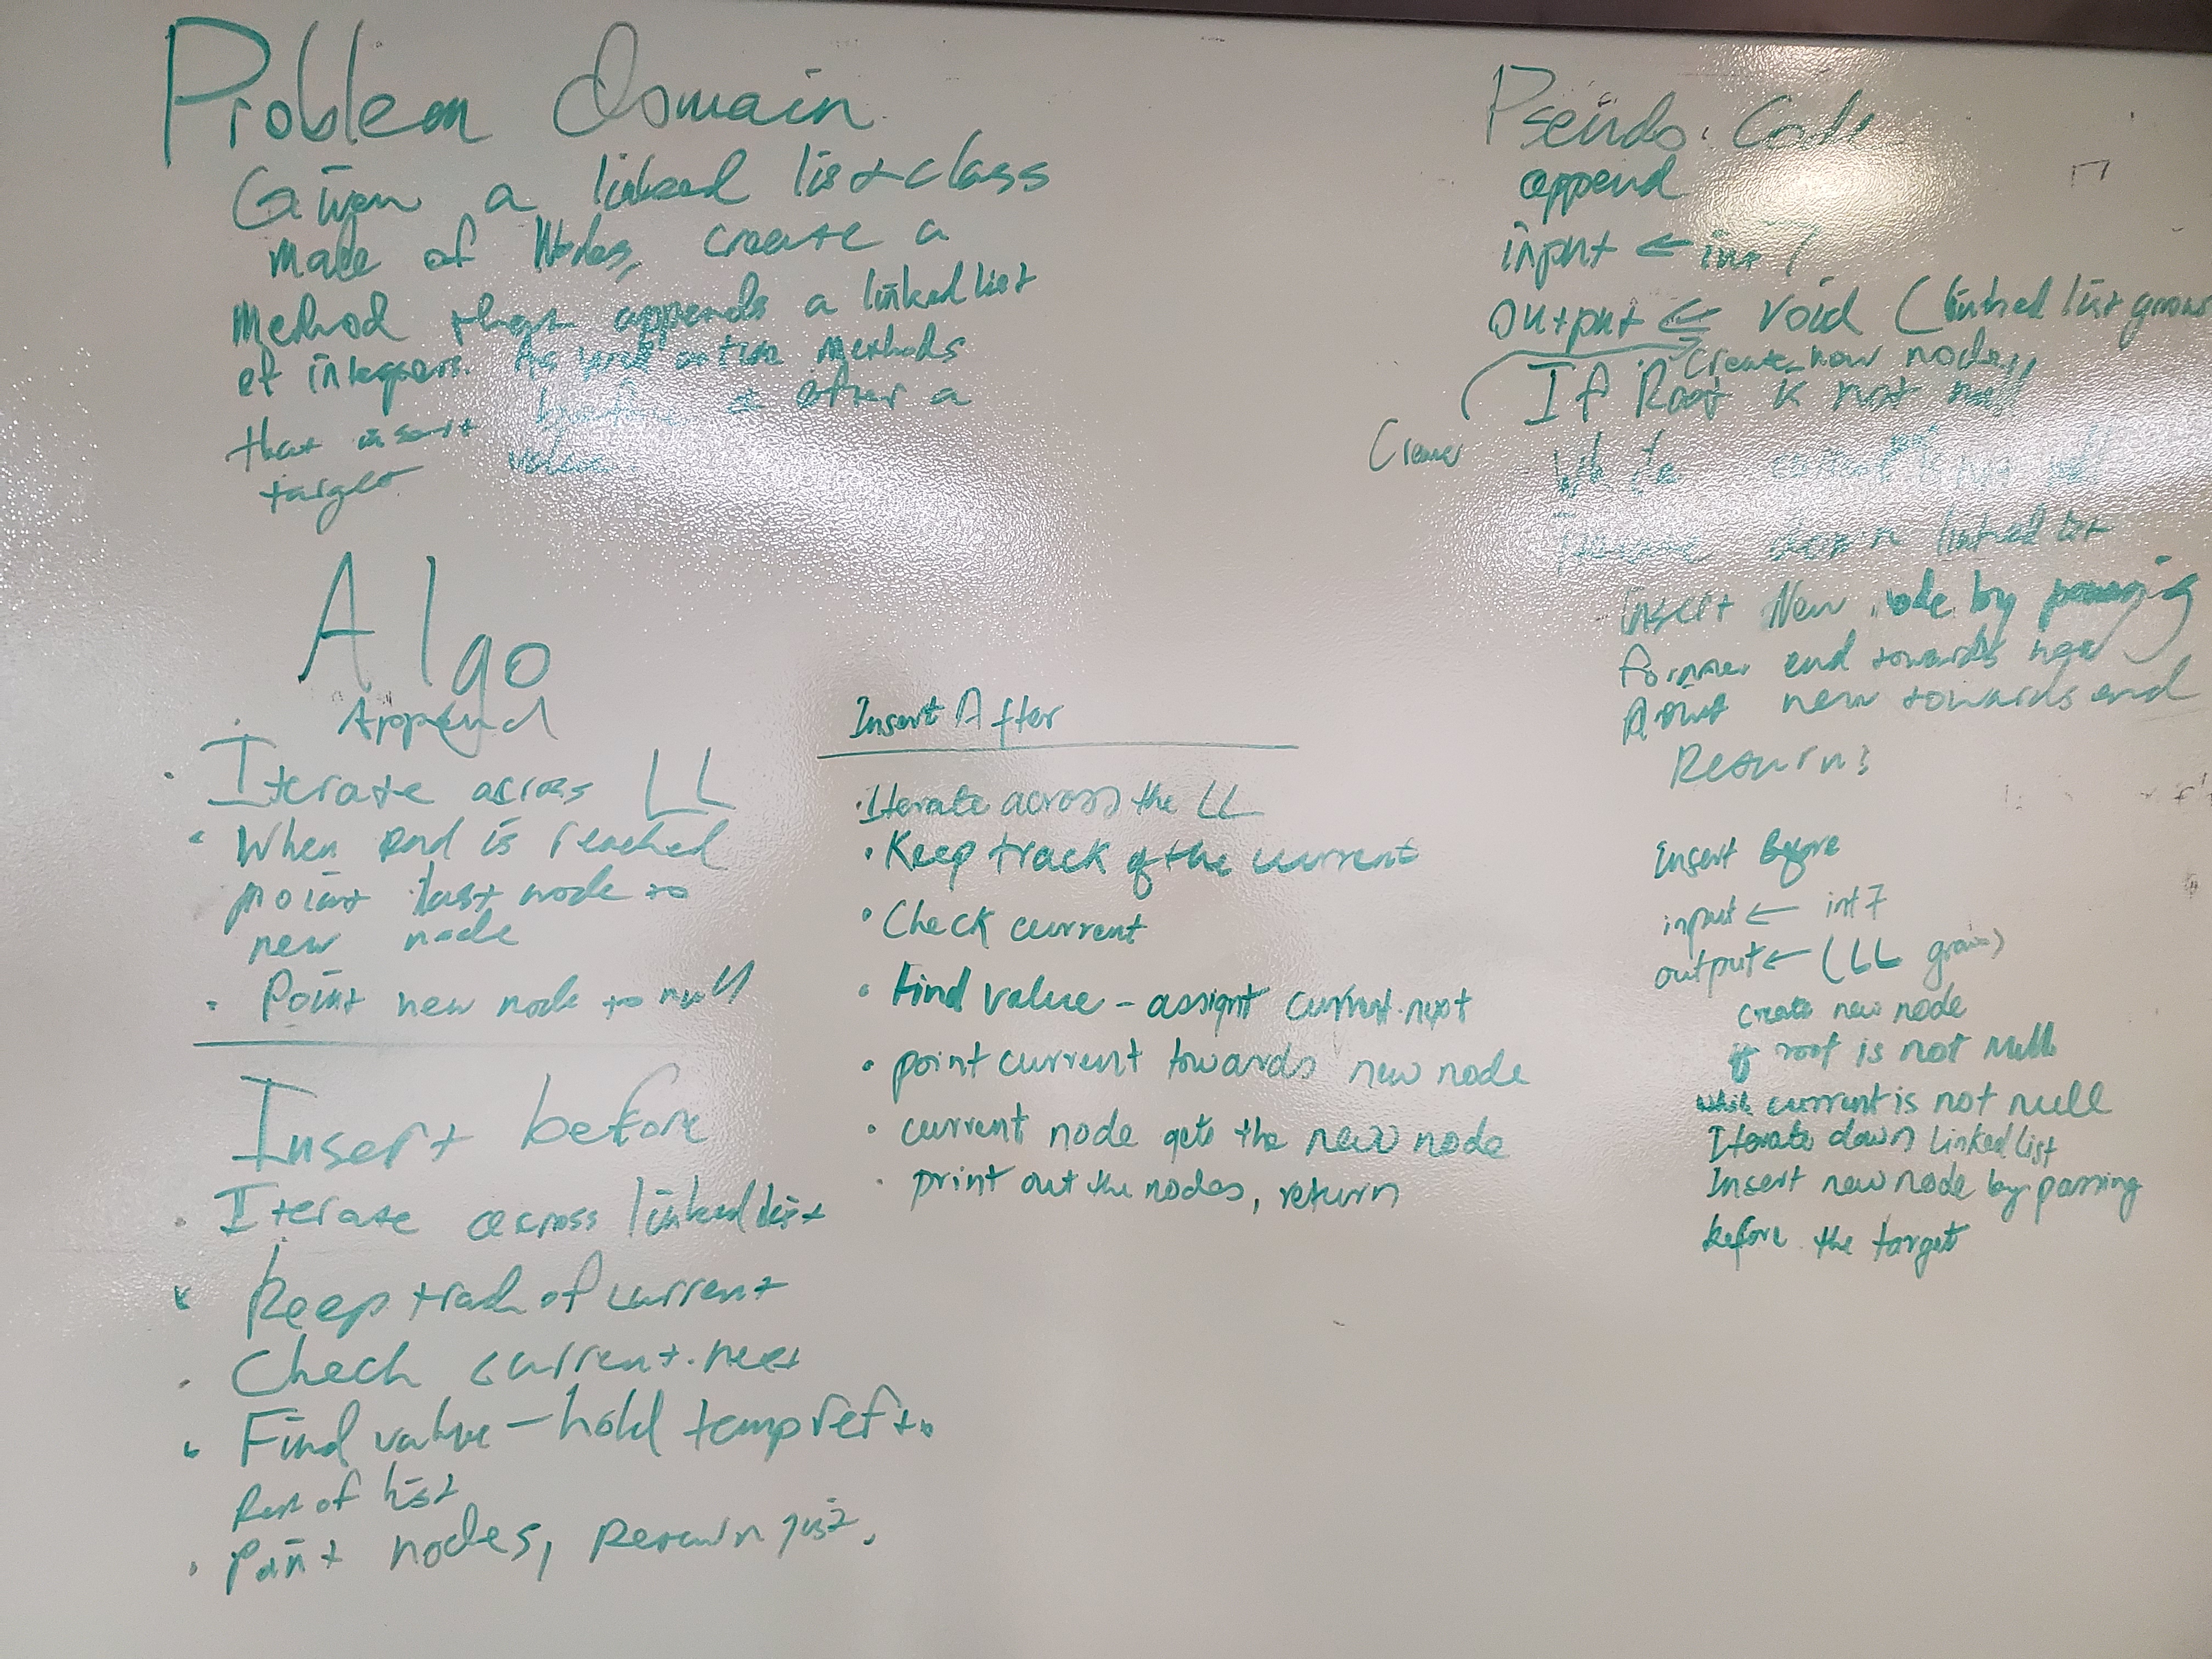 Problem Domain
Given a linked list class
made of Nodes, create a
Method that appends a linked list
of integers. As well as
that insert before & after a
target value
Algo
Append
· Iterate across LL
· When end is reached
point last node to
new node
· Point new node to null
Insert before
· Iterate across linked list
· Keep track of current
· Check current.next
· Find value - hold temp ref to
Rest of list
· Point nodes, Return list.
Insert After
· Iterate across the LL
· Keep track of the current
· Check current
· Find value - assignt current.next
· point current towards new node
· current node gets the new node
· print out the nodes, return
Pseudo Code
append
input ← int 7
output ← void (linked list grows
Create new node
If Root is not null
While
down linked list
Insert New node by
former end towards new
Point new towards end
Return;
Insert Before
input ← int 7
output ← (LL grows)
create new node
if root is not null
while current is not null
Iterate down linked list
Insert new node by passing
before the target